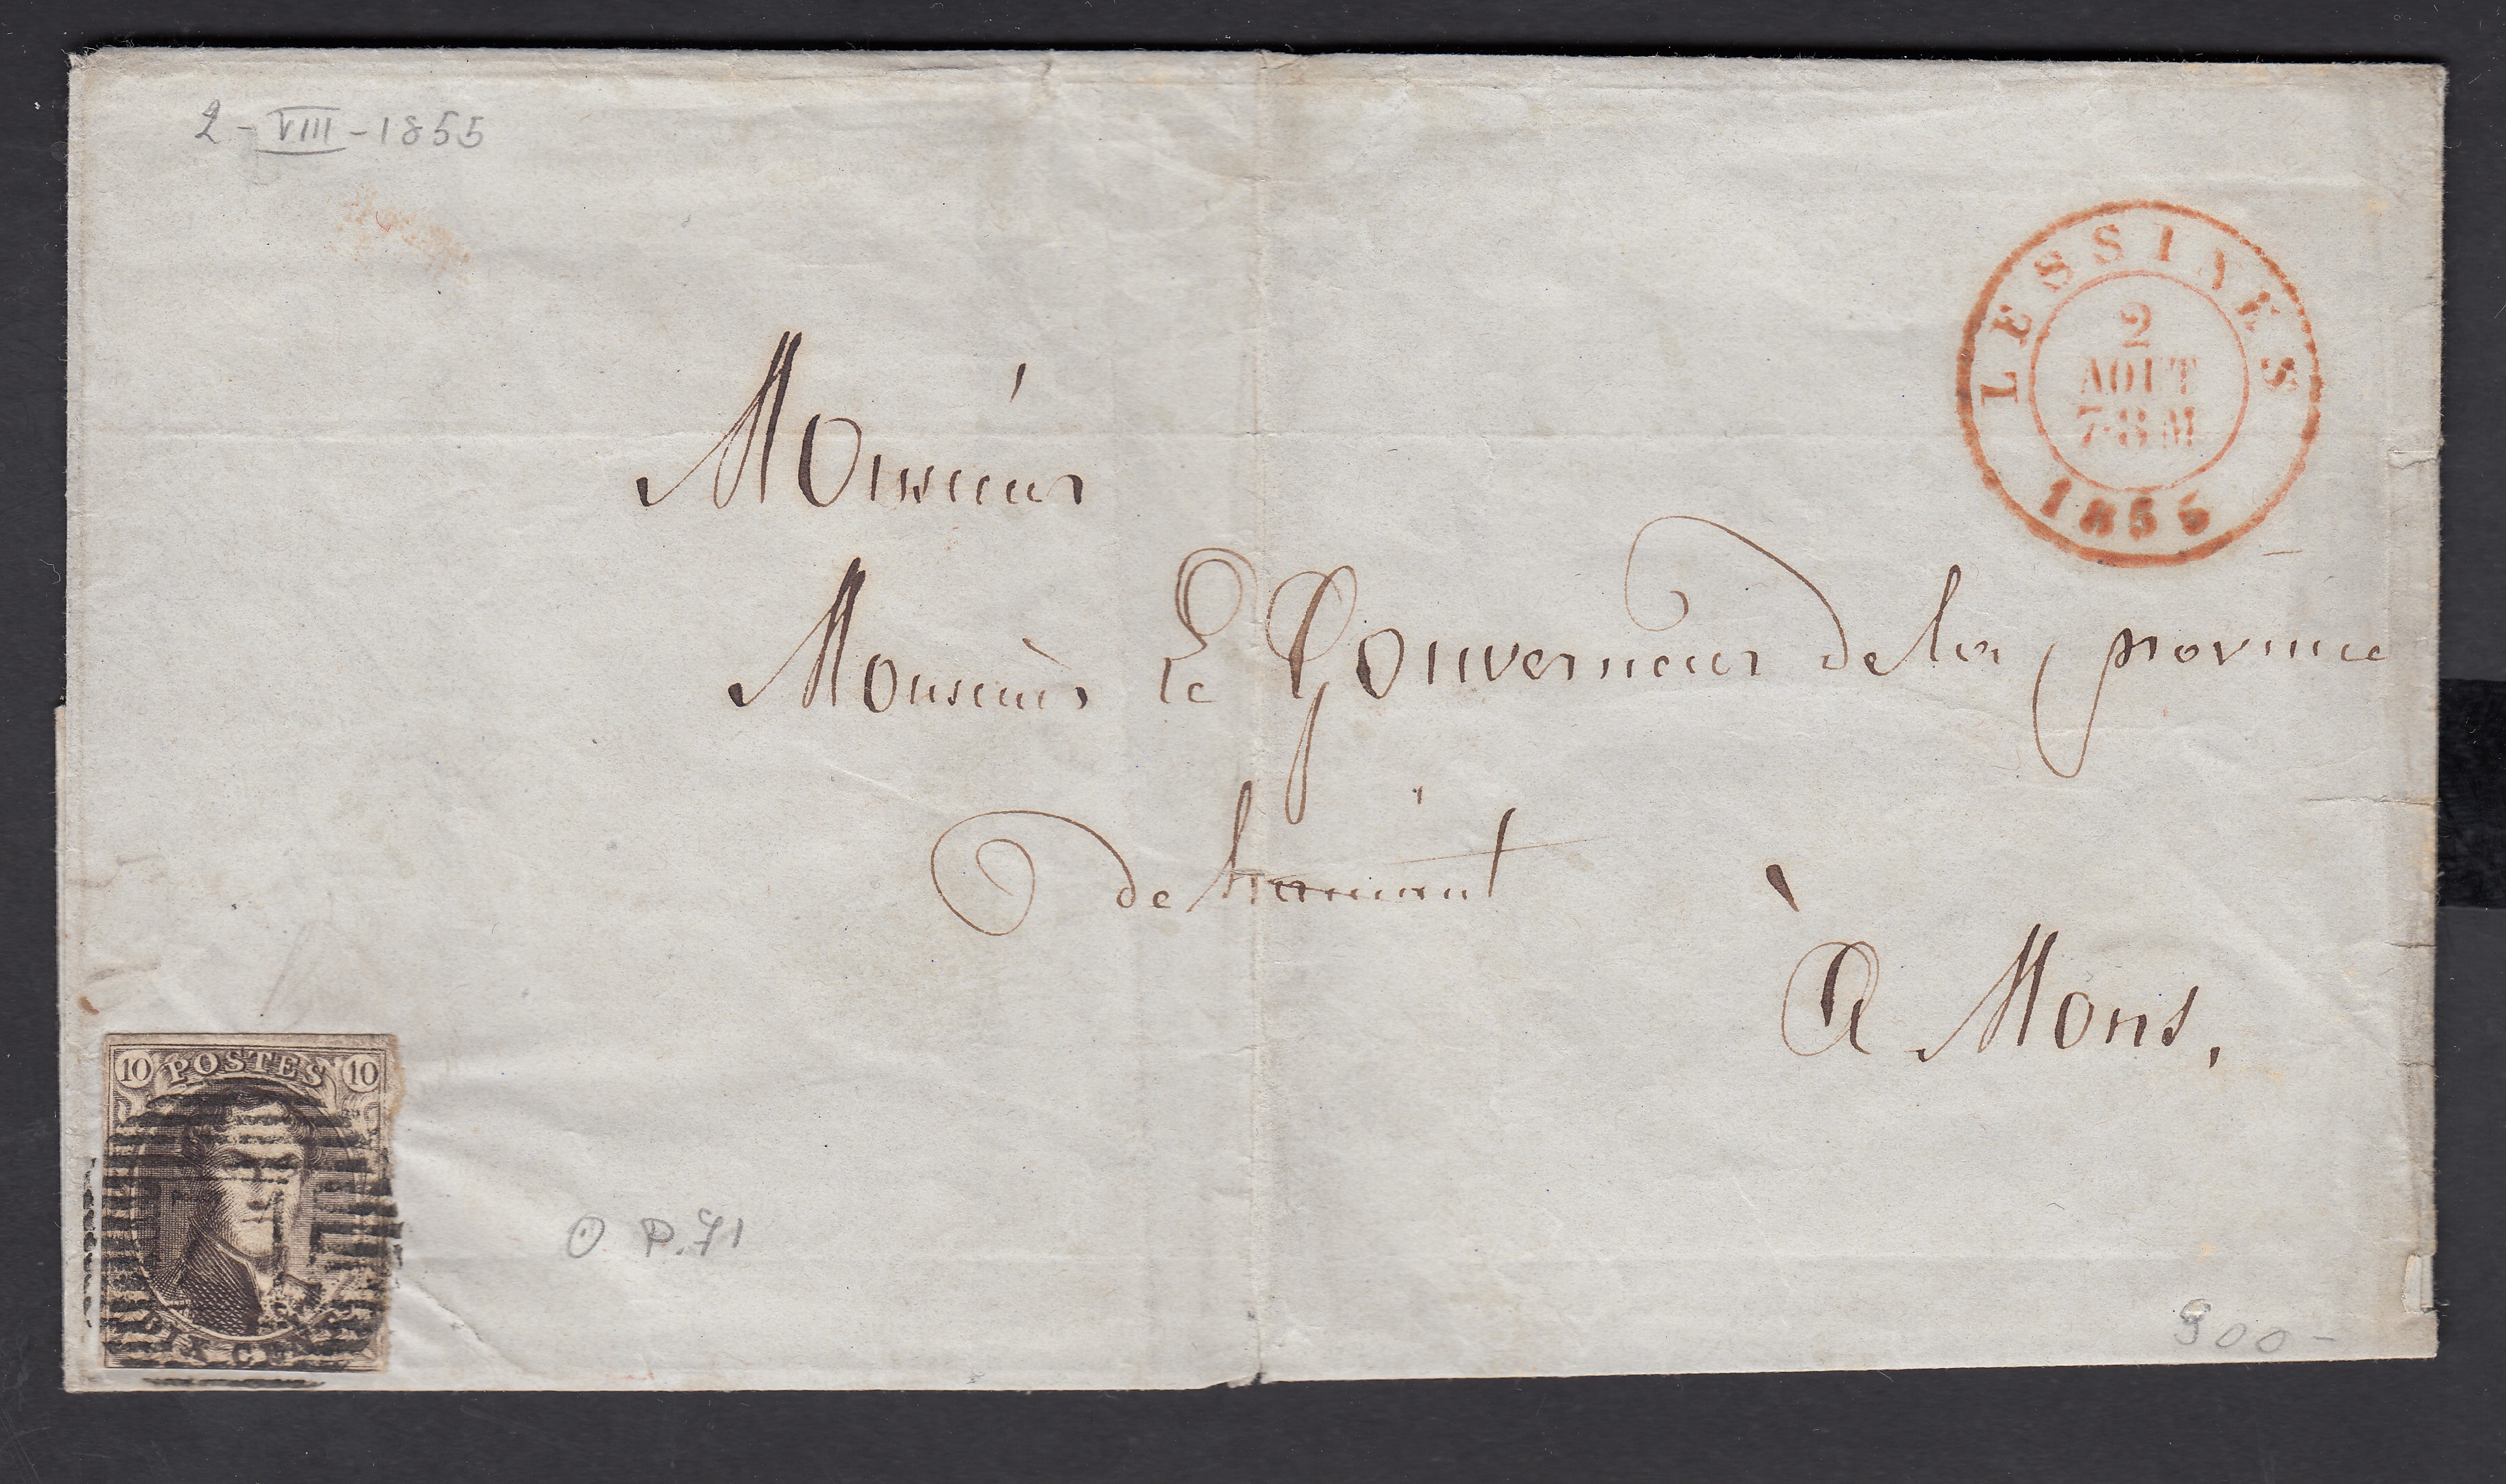 2 - VIII - 1855
LESSINES
2
AOUT
7-8 M
1855
Monsieur
Monsieur le Gouverneur de la province
de hainaut
à Mons.
10 POSTES 10
O P.71
900-